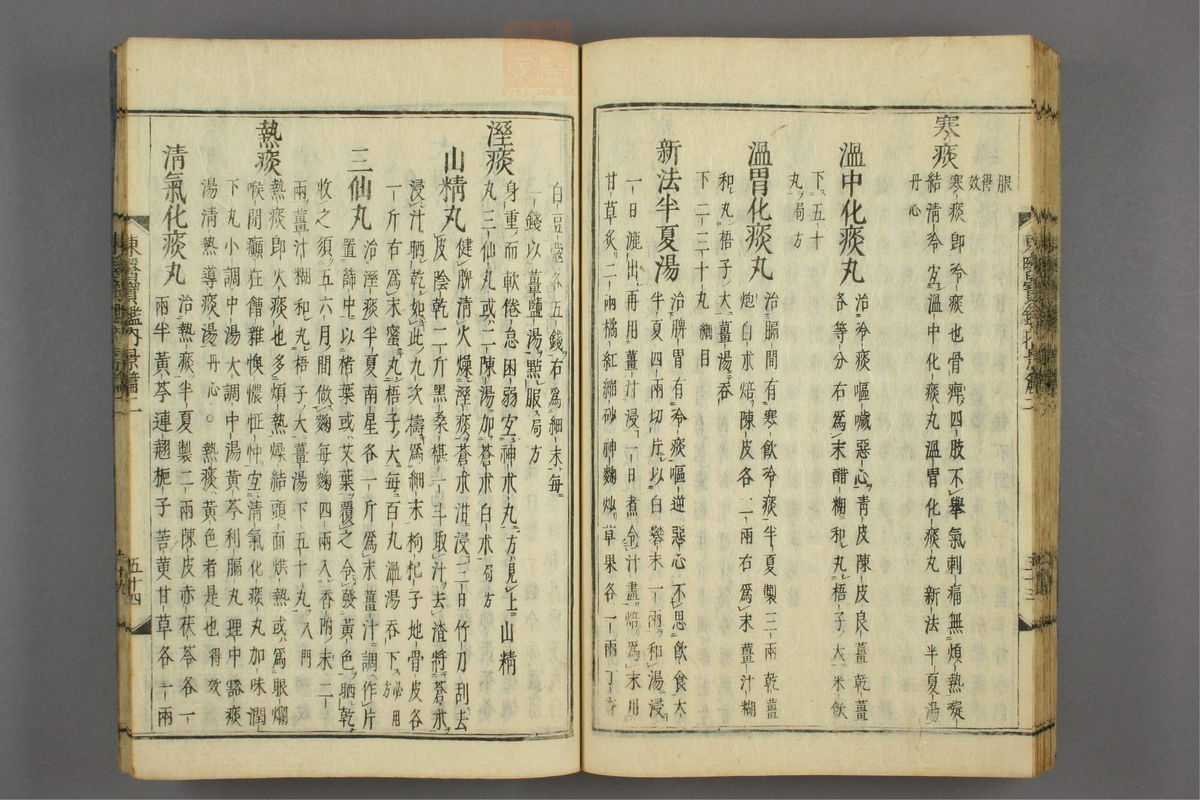 服
得
效
寒痰
寒痰卽冷痰也骨痺四肢不擧氣刺痛無煩熱凝
結清冷宜溫中化痰丸溫胃化痰丸新法半夏湯
丹心
溫中化痰丸
治冷痰嘔噦惡心靑皮陳皮良薑乾薑
各等分右爲末醋糊和丸梧子大米飮
下五十
丸局方
溫胃化痰丸
治膈間有寒飮冷痰半夏製三兩乾薑
炮白朮焙陳皮各二兩右爲末薑汁糊
和丸梧子大薑湯呑
下二三十丸綱目
新法半夏湯
治脾胃有冷痰嘔逆惡心不思飮食大
半夏四兩切片以白礬末一兩和湯浸
一日漉出再用薑汁浸一日煮令汁盡焙爲末用
甘草炙二兩橘紅縮砂神麴炒草果各一兩丁香
白豆蔲各五錢右爲細末每
一錢以薑鹽湯點服局方
濕痰
身重而軟倦怠困弱宜神朮丸方見上山精
丸三仙丸或二陳湯加蒼朮白朮局方
山精丸
健脾清火燥濕痰蒼朮泔浸三日竹刀刮去
皮陰乾二斤黑桑椹一斗取汁去渣將蒼朮
浸汁晒乾如此九次擣爲細末枸杞子地骨皮各
一斤右爲末蜜丸梧子大每百丸溫湯呑下必用
方
三仙丸
治濕痰半夏南星各一斤爲末薑汁調作片
置篩中以楮葉或艾葉覆之令發黃色晒乾
收之須五六月間做麴每麴四兩入香附末二
兩薑汁糊和丸梧子大薑湯下五十丸入門
熱痰
熱痰卽火痰也多煩熱燥結頭面烘熱或爲眼爛
喉閉癲狂嘈雜懊憹怔忡宜清氣化痰丸加味潤
下丸小調中湯大調中湯黃芩利膈丸理中豁痰
湯清熱導痰湯丹心○熱痰黃色者是也得效
清氣化痰丸
治熱痰半夏製二兩陳皮赤茯苓各一
兩半黃芩連翹梔子桔梗甘草各一兩
五十四